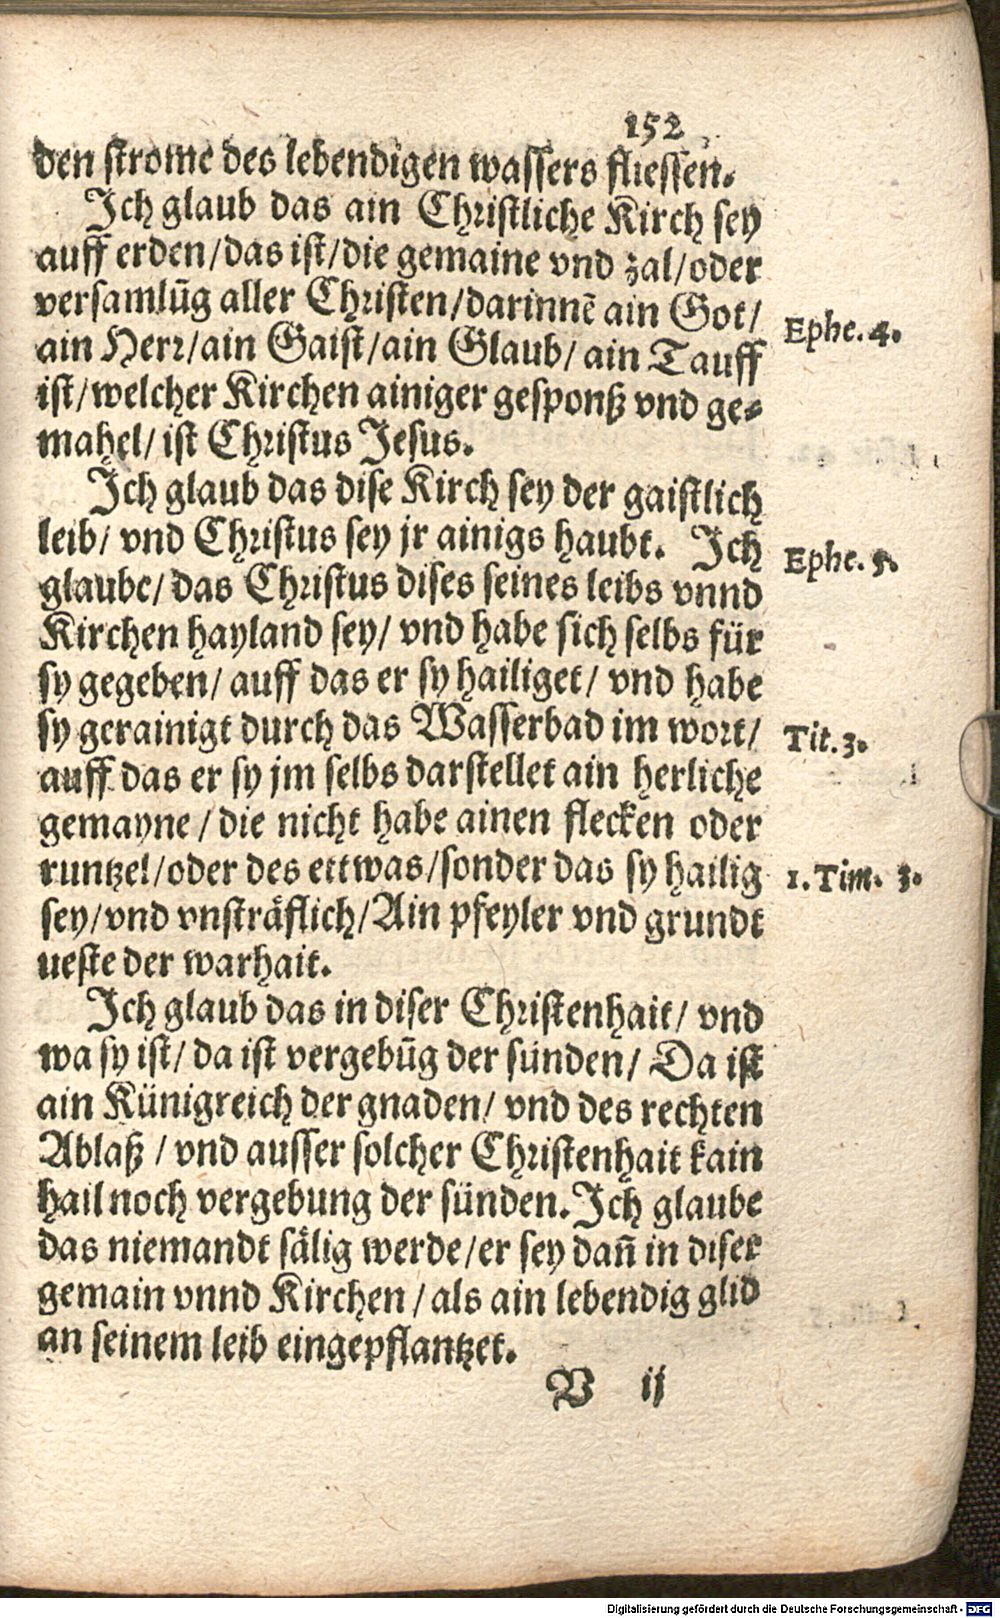 152
den strome des lebendigen wassers fliessen.
Ich glaub das ain Christliche Kirch sey
auff erden/das ist/die gemaine vnd zal/oder
versamlūg aller Christen/darinnē ain Got/
Ephe. 4.
ain Herr/ain Gaist/ain Glaub/ain Tauff
ist/welcher Kirchen ainiger gesponß vnd ge-
mahel/ist Christus Jesus.
Ich glaub das dise Kirch sey der gaistlich
leib/vnd Christus sey jr ainigs haubt. Ich
Ephe. 5.
glaube/das Christus dises seines leibs vnnd
Kirchen hayland sey/vnd habe sich selbs für
sy gegeben/auff das er sy hailiget/vnd habe
sy gerainigt durch das Wasserbad im wort/
Tit. 3.
auff das er sy jm selbs darstellet ain herliche
gemayne/die nicht habe ainen flecken oder
runtzel/oder des ettwas/sonder das sy hailig
1. Tim. 3.
sey/vnd vnsträflich/Ain pfeyler vnd grundt
ueste der warhait.
Ich glaub das in diser Christenhait/vnd
wa sy ist/da ist vergebūg der sünden/Da ist
ain Künigreich der gnaden/vnd des rechten
Ablaß/vnd ausser solcher Christenhait kain
hail noch vergebung der sünden. Ich glaube
das niemandt sälig werde/er sey dañ in diser
gemain vnnd Kirchen/als ain lebendig glid
an seinem leib eingepflantzet.
V ij
Digitalisierung gefördert durch die Deutsche Forschungsgemeinschaft - DFG